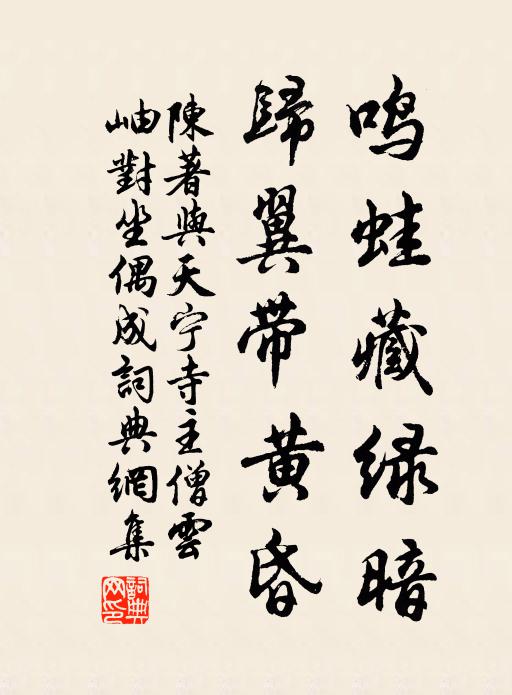 鸣蛙藏绿暗
歸翼带黄昏
陳著與天宁寺主僧雲
岫對坐偶成詞典網集
詞典网印